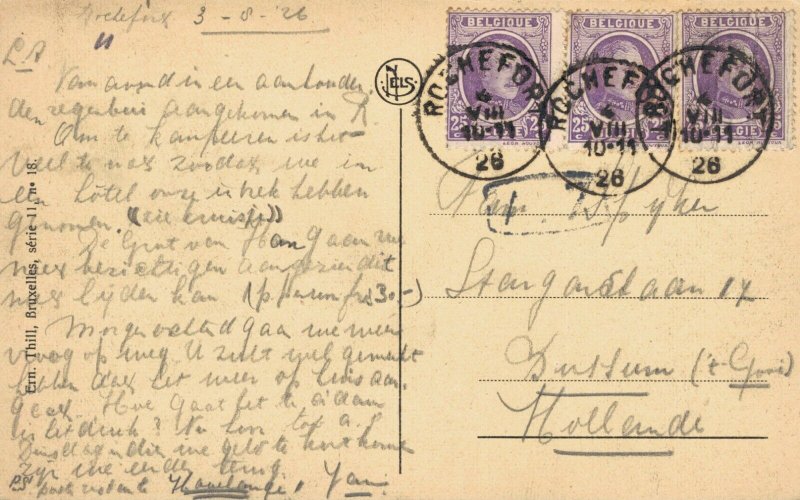 Rochefort 3-8-26
L A
Van avond in een aanhouden
den regenbui aangekomen in R
Om te kampeeren is het
veel te nat zoodat we in
een hôtel onze intrek hebben
genomen. ((zie kruisje))
De Grot van Han gaan we
nog bezichtigen aangezien dit
nog lijden kan (p persoon fr 30.-)
Morgenochtend gaan we weer
vroeg op weg U zult wel gemerkt
hebben dat het weer op huis aan
gaat. Hoe gaat het te A'dam
is het druk? Nu hoor tot a.s
Dinsdag en die we geld te kort komen
zijn we eerder terug.
PS poste restante Jan
NELS
Ern. Thill, Bruxelles, série 11, n° 18.
BELGIQUE
BELGIQUE
BELGIQUE
25c
25c
ROCHEFORT
4
VIII
10-11
26
ROCHEFORT
4
VIII
10-11
26
ROCHEFORT
4
VIII
10-11
26
Fam. Spijker
Stargardtlaan 17
Bussum ('t Gooi)
Hollande